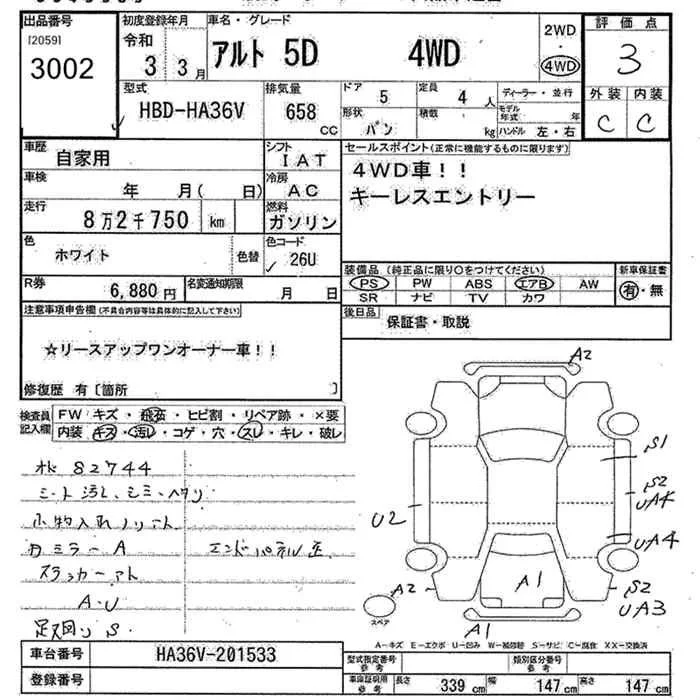 出品番号
[2059]
3002
初度登録年月
令和
3 3月
車名・グレード
アルト 5D 4WD
2WD
・
4WD
評価点
3
外装 内装
C C
型式
HBD-HA36V
排気量
658 cc
ドア
5
定員
4 人
形状
バン
積載
kg
ディーラー・並行
モデル年式 年
ハンドル 左・右
車歴
自家用
シフト
IAT
車検
年 月( 日)
冷房
AC
走行
8万2千750 km
燃料
ガソリン
色
ホワイト
色替
色コード
26U
R券
6,880円
名変通知期限
月 日
セールスポイント(正常に機能するものに限ります)
4WD車!!
キーレスエントリー
装備品(純正品に限り○をつけてください)
PS PW ABS エアB AW
SR ナビ TV カワ
新車保証書
有・無
後日品
保証書・取説
注意事項申告欄(不具合内容等は具体的に記入して下さい)
☆リースアップワンオーナー車!!
修復歴 有〔箇所 〕
検査員記入欄
FW キズ・飛石・ヒビ割・リペア跡・×要
内装 キズ・汚レ・コゲ・穴・スレ・キレ・破レ
82744
シート汚レ、シミ、ヘタリ
ルミラーA
エンドパネル歪
ステッカーアト
A・U
足廻りS
A2
S1
S2
UA4
U2
UA4
A2
A1
S2
UA3
A1
スペア
A-キズ E-エクボ U-凹み W-補修跡 S-サビ C-腐食 XX-交換済
車台番号
HA36V-201533
登録番号
型式指定番号 参考
類別区分番号 参考
車庫証明用 参考
長さ 339 cm
幅 147 cm
高さ 147 cm